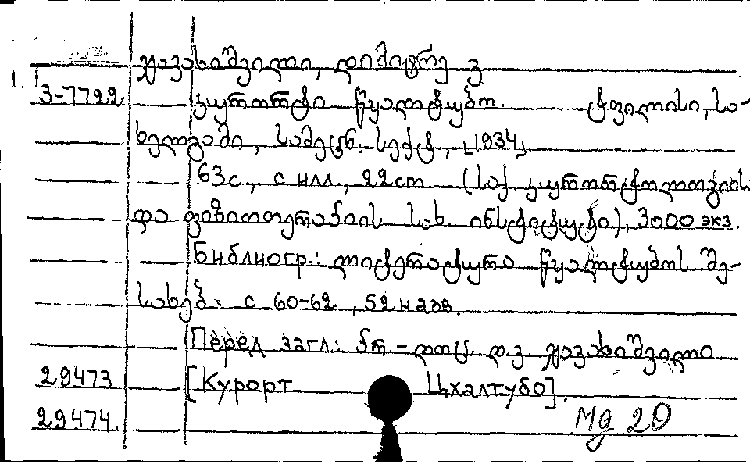 ჯავახიშვილი, დიმიტრი ვ
3-7722 კურორტი წყალტუბო. ტფილისი, სა-
ხელგამი, სამედ. სექტ., [1934]
63с., с илл., 22cm (საქ. კურორტოლოგიის
და ფიზიოთერაპიის სახ. ინსტიტუტი), 3000 экз.
Библиогр.: ლიტერატურა წყალტუბოს შე-
სახებ: с 60-62, 52 назв.
Перед загл.: პრ-დოც. დ. ვ. ჯავახიშვილი
29473 [Курорт Цхалтубо].
29474. Мд 20